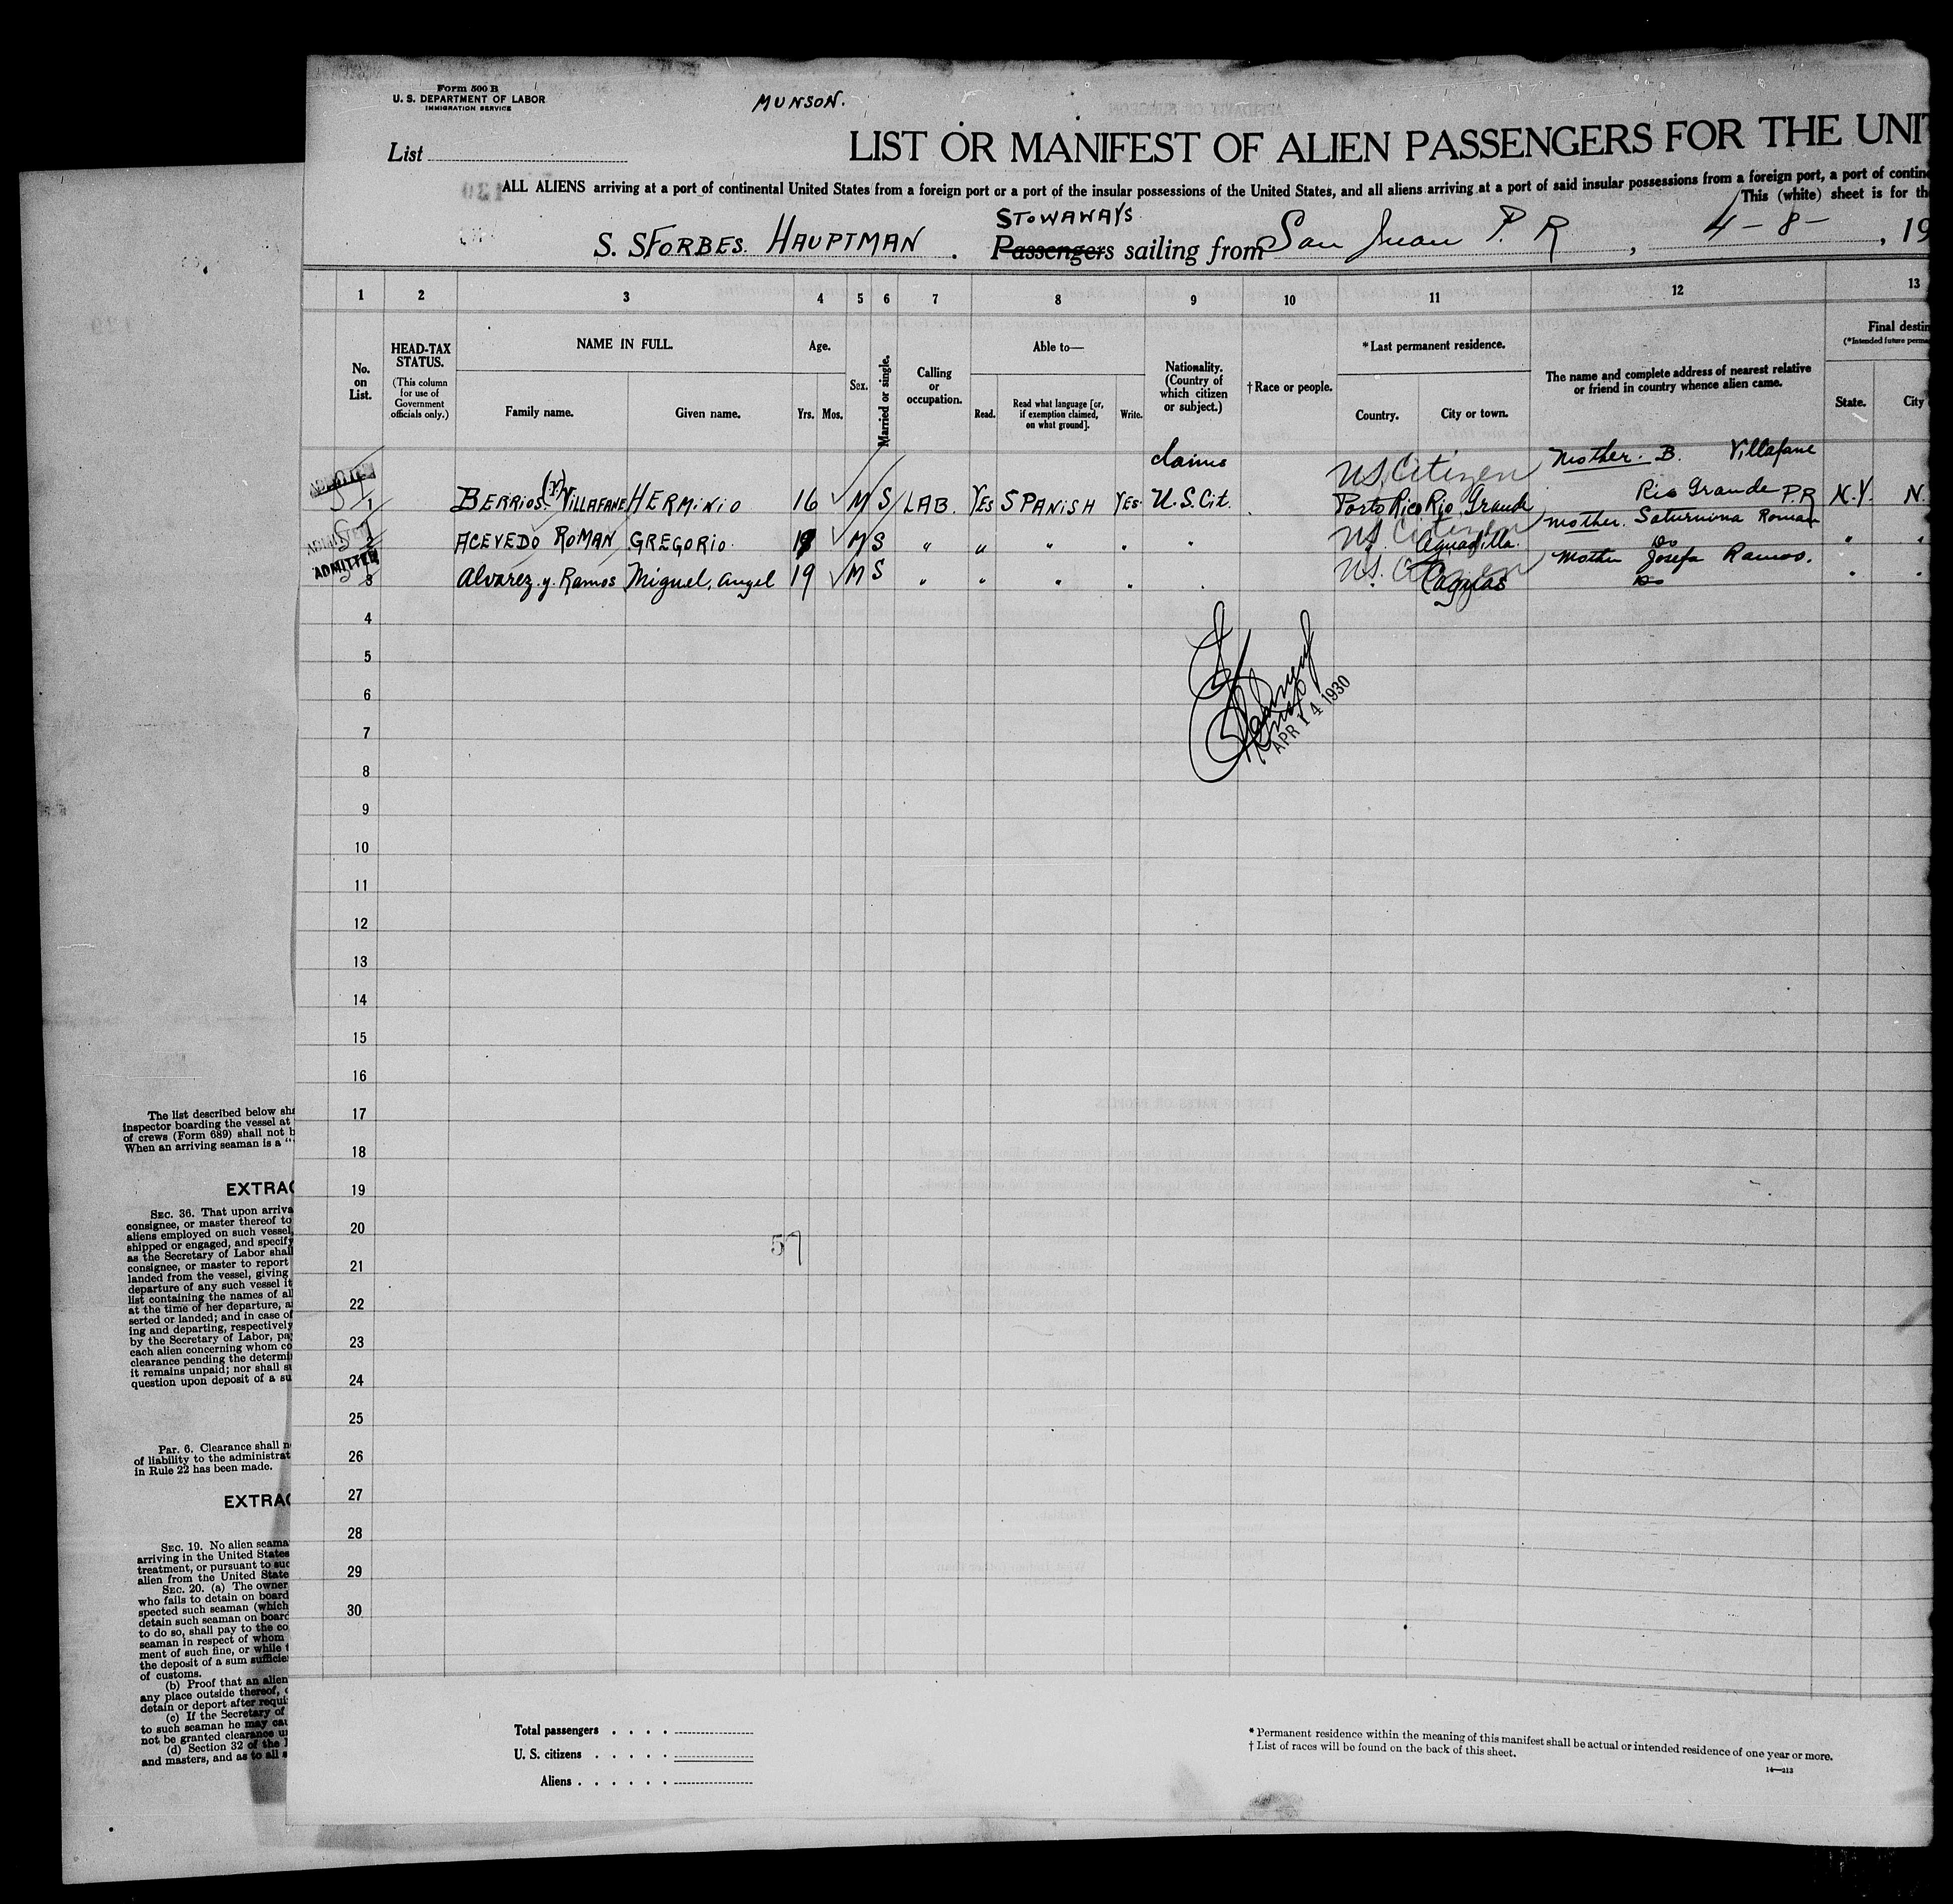 Form 500 B
U. S. DEPARTMENT OF LABOR
IMMIGRATION SERVICE
MUNSON.
List
LIST OR MANIFEST OF ALIEN PASSENGERS FOR THE UNIT
ALL ALIENS arriving at a port of continental United States from a foreign port or a port of the insular possessions of the United States, and all aliens arriving at a port of said insular possessions from a foreign port, a port of contine
This (white) sheet is for th
STOWAWAYS
S. S FORBES HAUPTMAN. Passengers sailing from San Juan P. R, 4-8-, 19
1 2 3 4 5 6 7 8 9 10 11 12 13
No. on List.
HEAD-TAX STATUS.
(This column for use of Government officials only.)
NAME IN FULL.
Family name. Given name.
Age.
Yrs. Mos.
Sex.
Married or single.
Calling or occupation.
Able to—
Read. Read what language [or, if exemption claimed, on what ground]. Write.
Nationality. (Country of which citizen or subject.)
† Race or people.
* Last permanent residence.
Country. City or town.
The name and complete address of nearest relative or friend in country whence alien came.
Final destin
(*Intended future perma
State. City
claims US Citizen Mother. B. Villafane
1 BERRIOS (Y) VILLAFANE HERMINIO 16 M S LAB. YES SPANISH YES U.S.Cit. Porto Rico Rio Grande Rio Grande P.R N.Y. N.
ADMITTED 2 ACEVEDO ROMAN GREGORIO. M S " " " " " US Citizen Aguadilla. Mother. Saturnina Roman Do " "
ADMITTED 3 Alvarez y Ramos Miguel, Angel 19 M S " " " " US. Citizen Caguas Mother Josefa Ramos. Do " "
4
5
6
7
APR 14 1930
8
9
10
11
12
13
14
15
16
17
18
19
20
57
21
22
23
24
25
26
27
28
29
30
Total passengers . . . .
U. S. citizens . . . . .
Aliens . . . . . .
* Permanent residence within the meaning of this manifest shall be actual or intended residence of one year or more.
† List of races will be found on the back of this sheet.
14—213
The list described below sha
inspector boarding the vessel at
of crews (Form 689) shall not b
When an arriving seaman is a "
EXTRAC
SEC. 36. That upon arriva
consignee, or master thereof to
aliens employed on such vessel,
shipped or engaged, and specify
as the Secretary of Labor shall
consignee, or master to report
landed from the vessel, giving
departure of any such vessel it
list containing the names of all
at the time of her departure, a
serted or landed; and in case of
ing and departing, respectively
by the Secretary of Labor, pay
each alien concerning whom co
clearance pending the determi
it remains unpaid; nor shall su
question upon deposit of a su
Par. 6. Clearance shall n
of liability to the administrat
in Rule 22 has been made.
EXTRAC
SEC. 19. No alien seama
arriving in the United States
treatment, or pursuant to suc
alien from the United State
SEC. 20. (a) The owner
who fails to detain on board
spected such seaman (which
detain such seaman on board
to do so, shall pay to the co
seaman in respect of whom
ment of such fine, or while t
the deposit of a sum sufficie
of customs.
(b) Proof that an alien
any place outside thereof, o
detain or deport after requi
(c) If the Secretary of
to such seaman he may cau
not be granted clearance u
(d) Section 32 of the I
and masters, and as to all s